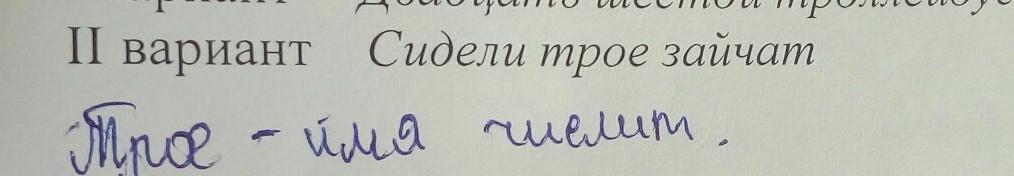 II вариант Сидели трое зайчат
Трое - имя числит.